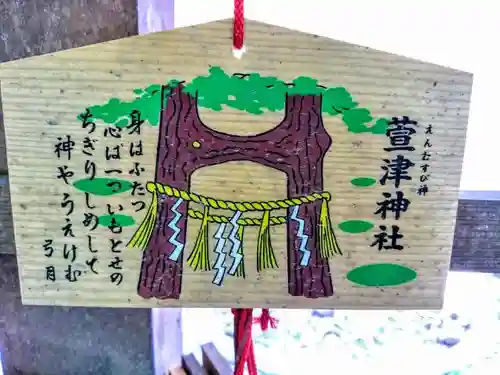 えんむすび神
萱津神社
身はふたつ
心は一つにいもとせの
ちぎりしめして
神やうえけむ
弓月